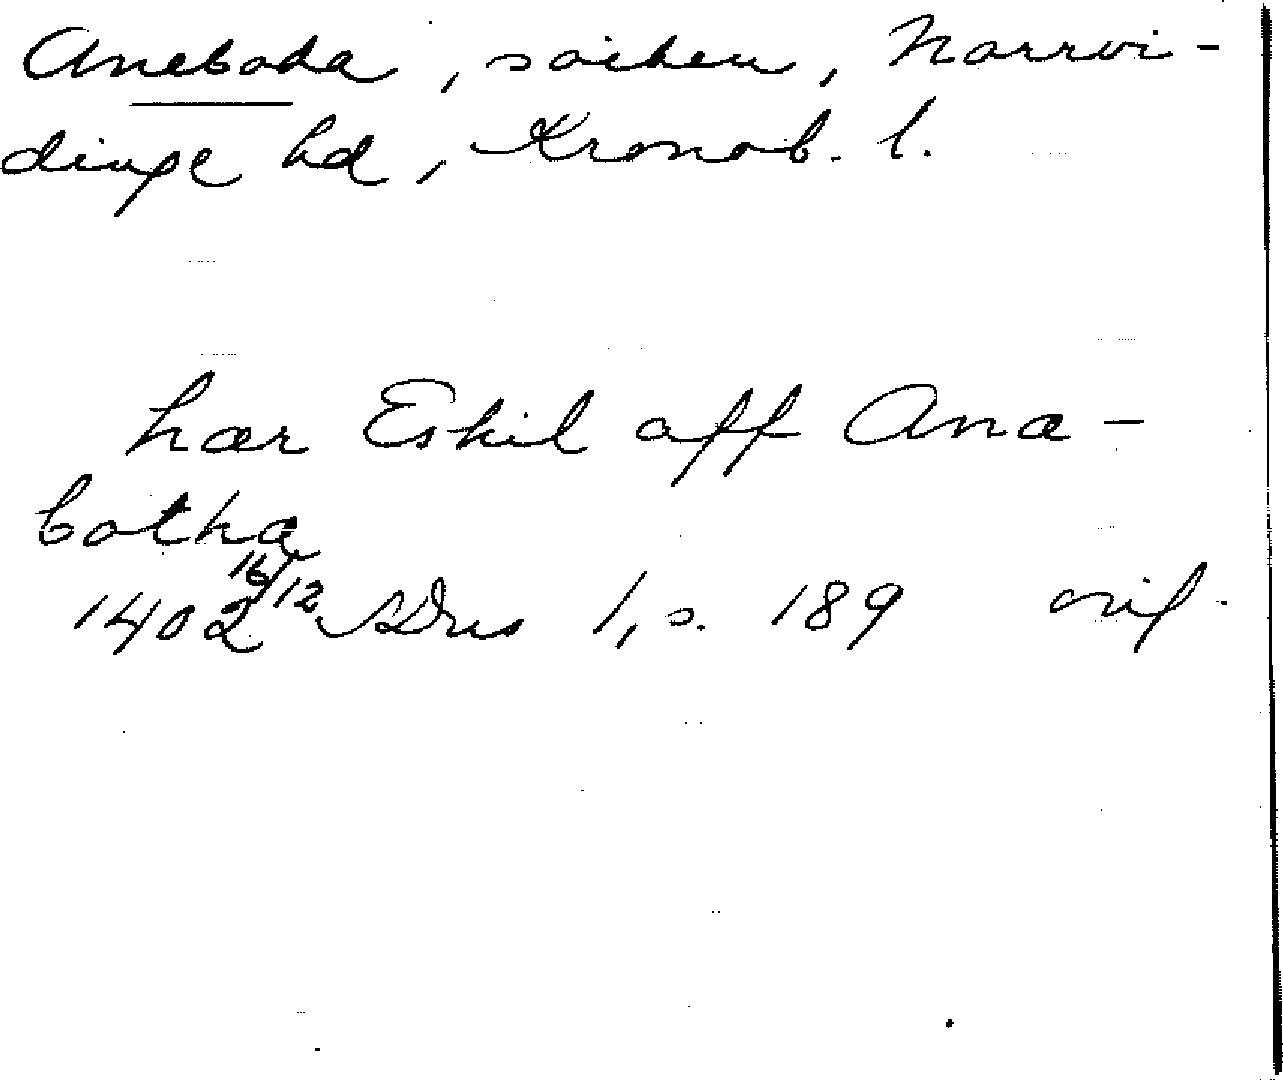 Aneboda, socken, Norrvi-
dinge hd, Kronob. l.
hær Eskil aff Ana-
botha
1402 16/12 SDns 1, s. 189 orig.